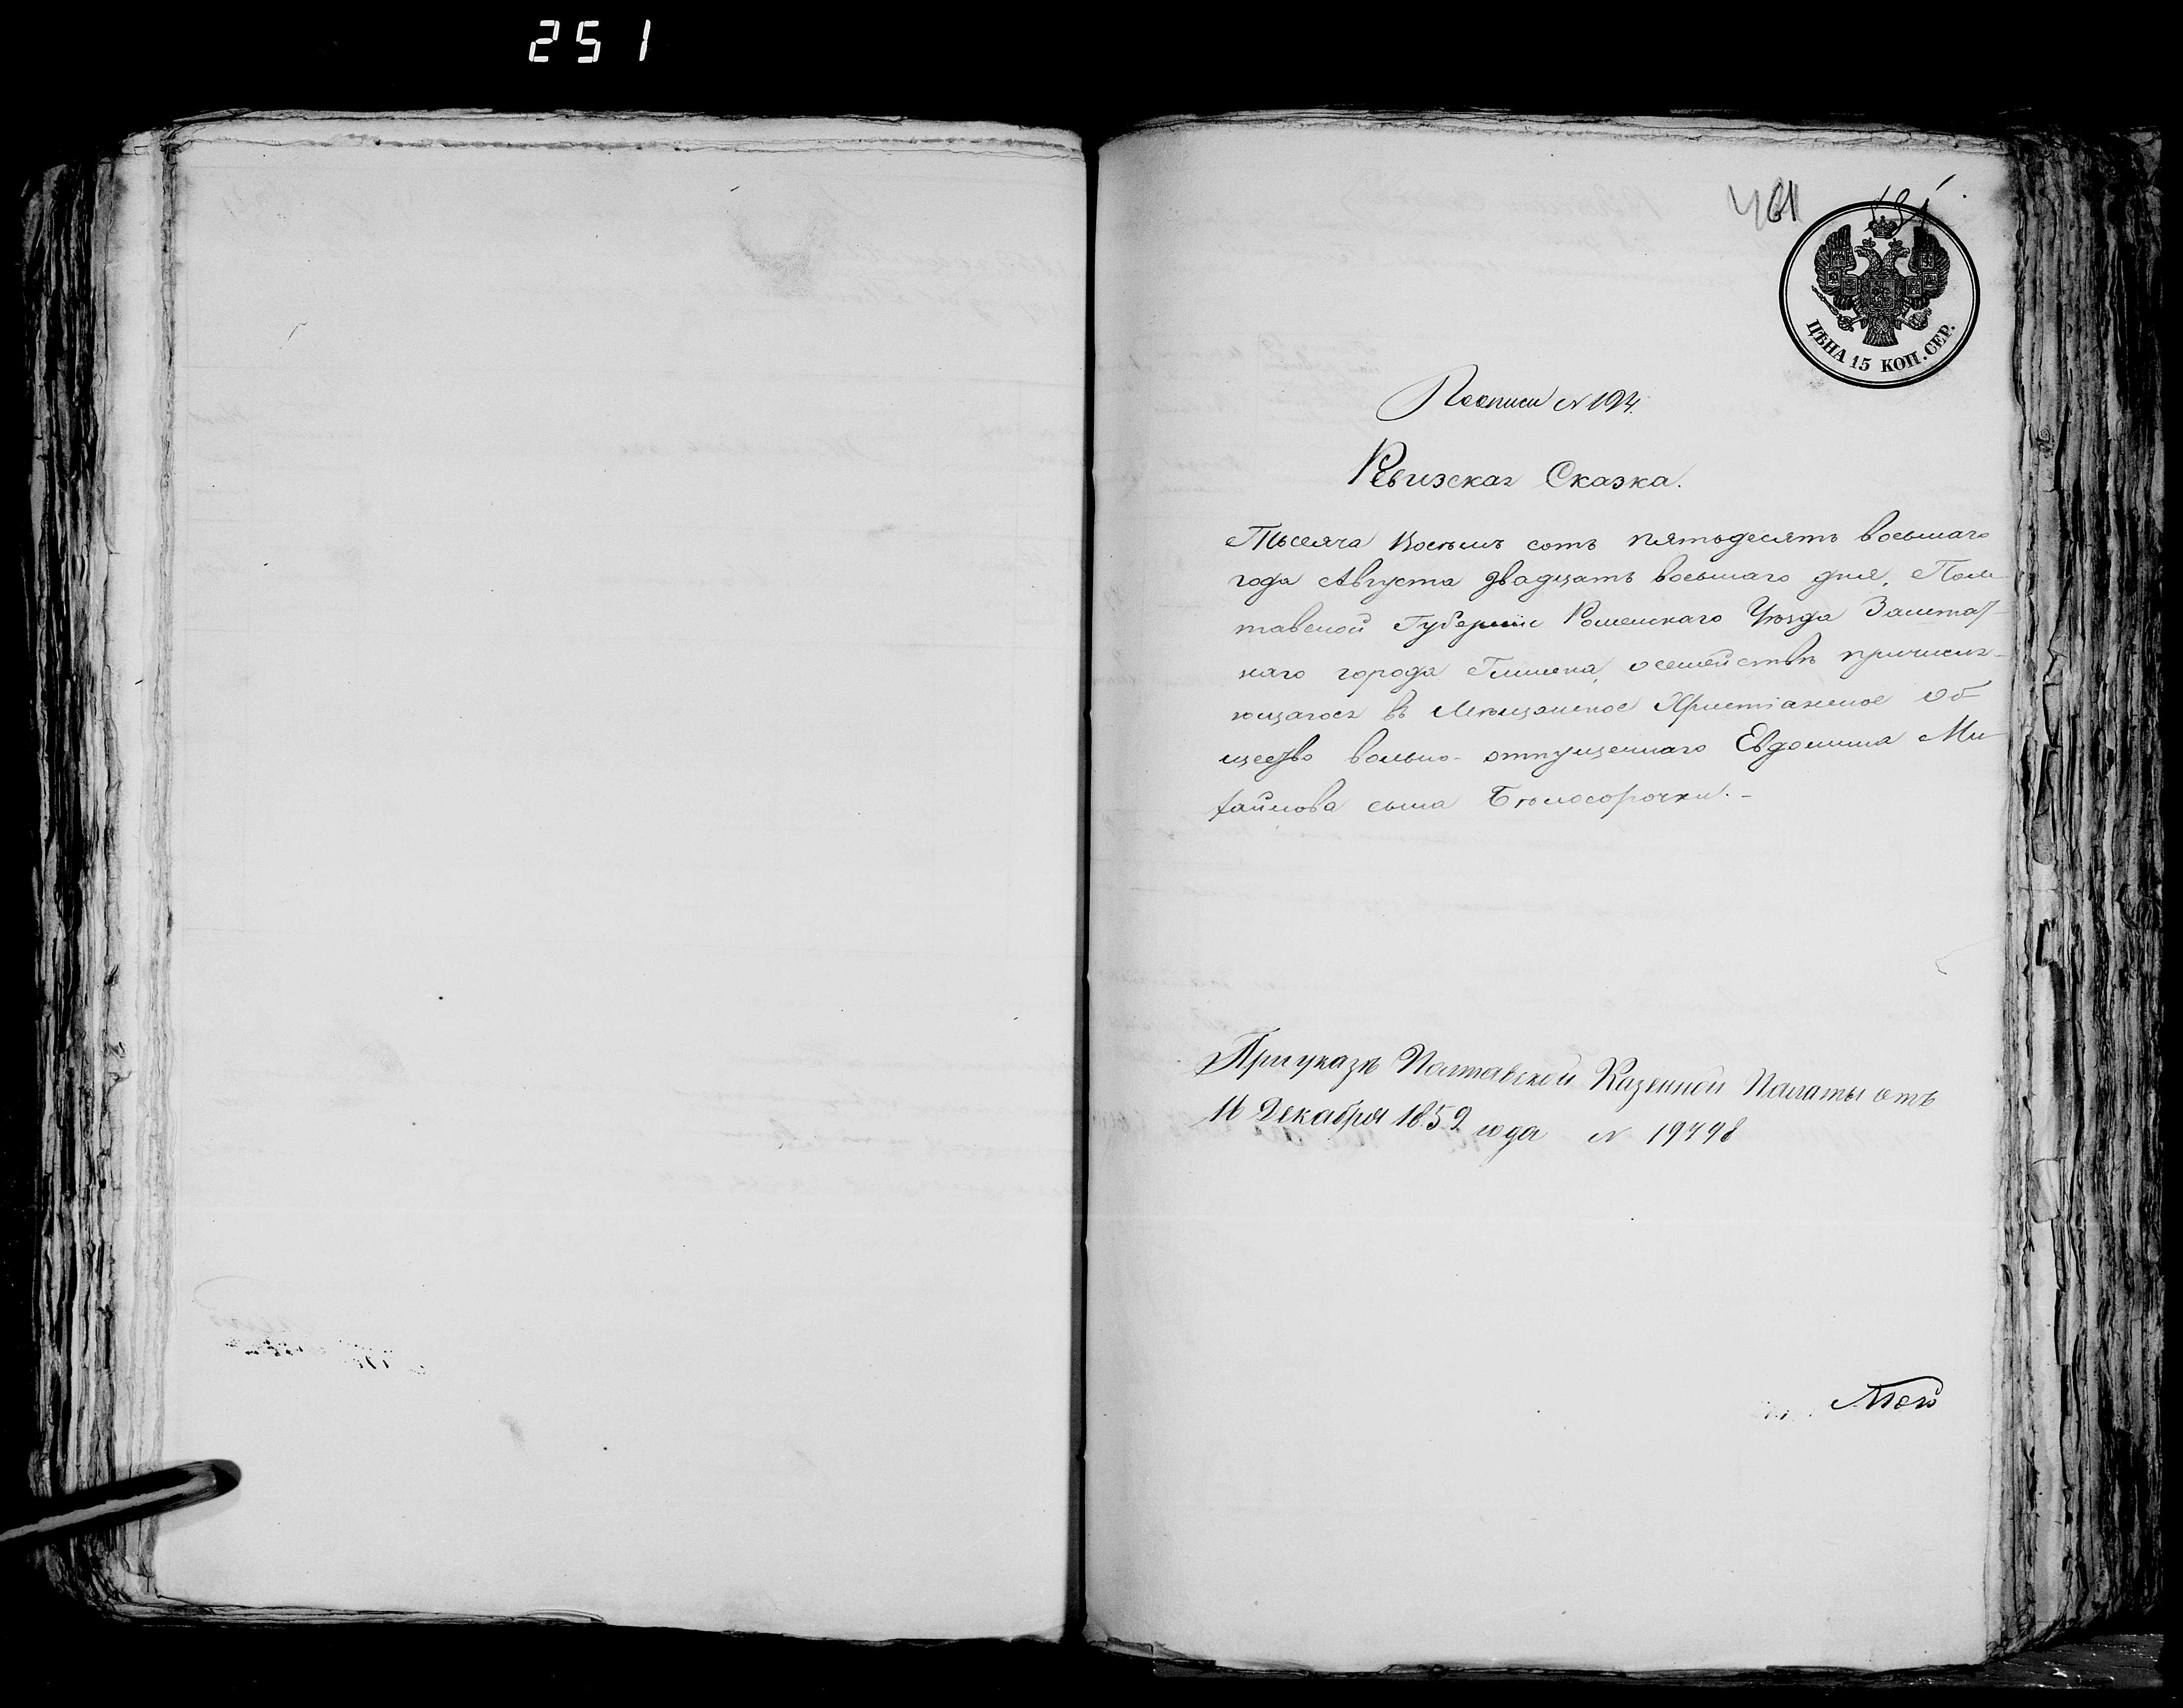 251
461
ЦѢНА 15 КОП. СЕР.
По описи № 194.
Ревизская Сказка.
Тысяча восемь сотъ пятьдесятъ восьмаго
года Августа двадцать восьмаго дня, Пол
тавской Губерніи Роменскаго Уѣзда Заштат
наго города Глинска, о семействѣ причисля
ющагося въ Мѣщанское Христіанское Об
щество вольно-отпущеннаго Евдокима Ми
хайлова сына Бѣлосорочки.-
При указѣ Полтавской Казенной Палаты отъ
16 Декабря 1859 года № 19798